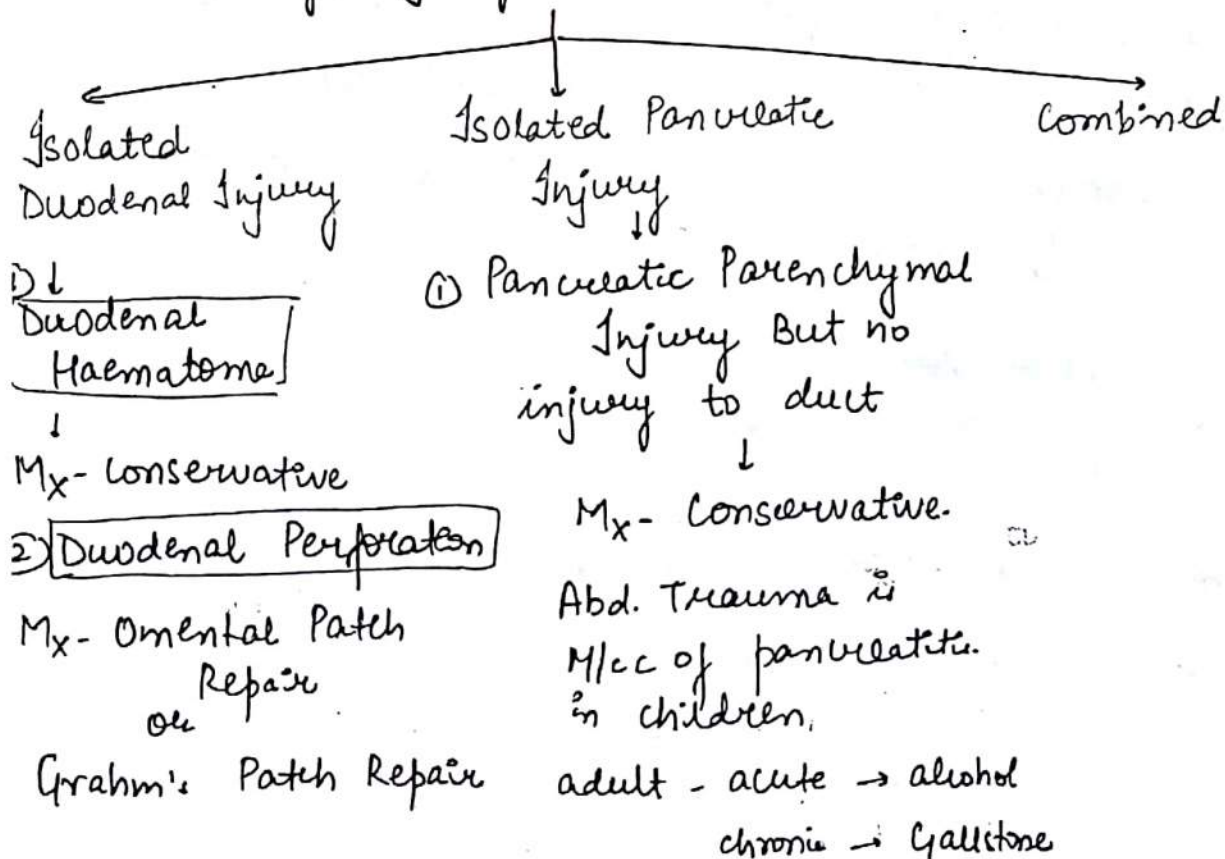 Isolated
Duodenal Injury
1) ↓
Duodenal
Haematome
↓
Mx - Conservative
2) Duodenal Perforation
Mx - Omental Patch
Repair
or
Grahm's Patch Repair
Isolated Pancreatic
Injury
↓
① Pancreatic Parenchymal
Injury But no
injury to duct
↓
Mx - Conservative.
Abd. Trauma is
M/cc of pancreatitis
in children,
adult - acute → alcohol
chronic → Gallstone
Combined